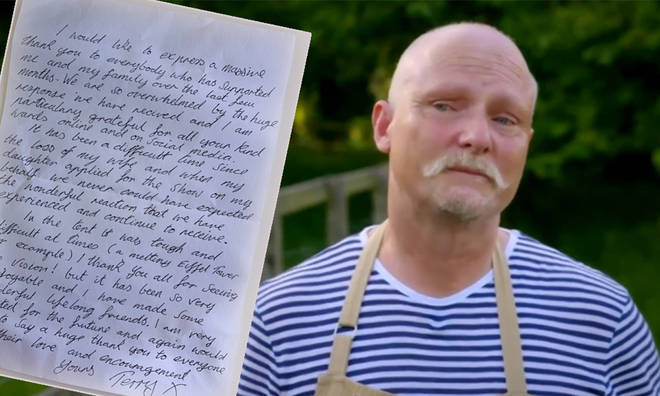 I would like to express a massive
thank you to everybody who has supported
me and my family over the last few
months. We are so overwhelmed by the huge
response we have recived and I am
particulary grateful for all your kind
words online and on social media.
It has been a difficult time since
the loss of my wife and when my
daughter applied for the show on my
behalf we never could have expected
the wonderful reaction that we have
experienced and continue to receive.
In the tent it was tough and
difficult at times (a melting Eiffel Tower
for example) I thank you all for seeing
vision! but it has been so very
and I have made some
lifelong friends. I am very
for the future and again would
to say a huge thank you to everyone
their love and encouragement
Yours Terry X